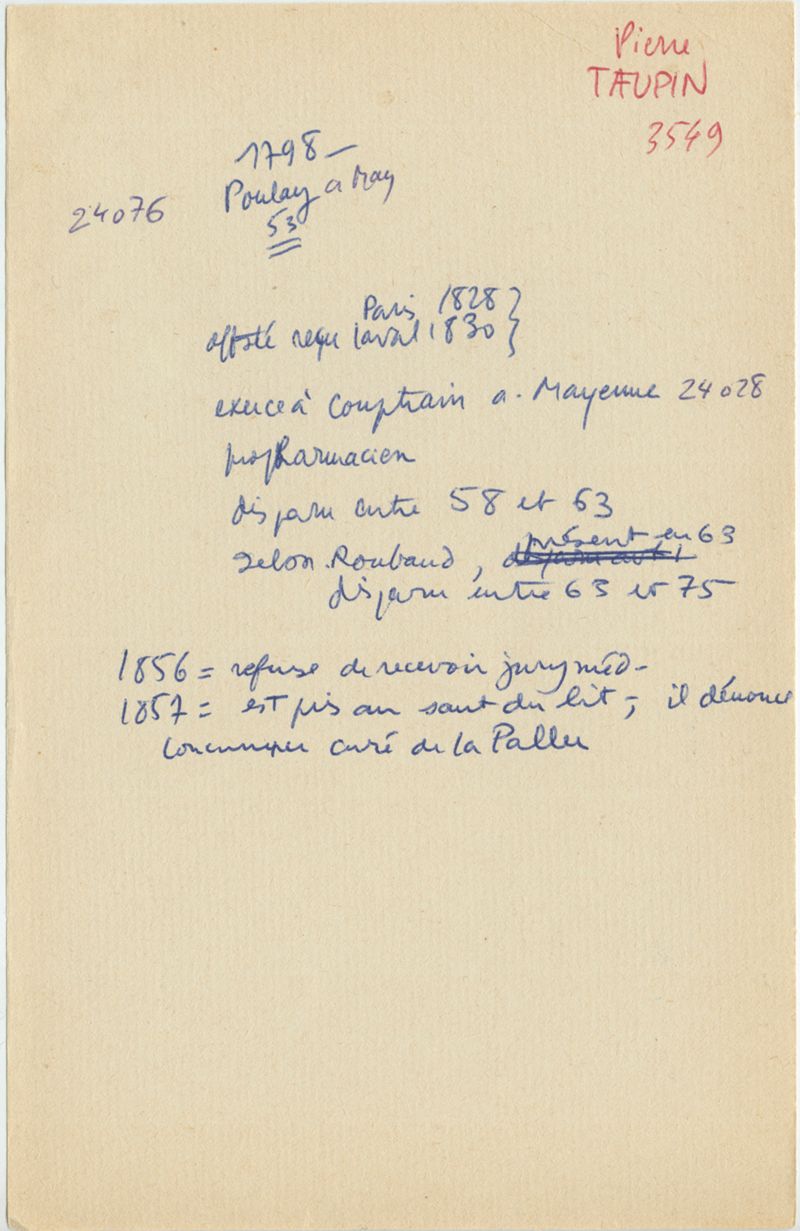 Pierre
TAUPIN
3549
1798 –
Poulay a May
24076
53
Paris 1828 }
off santé reçu Laval 1830 }
exerce à Couptrain a. Mayenne 24028
propharmacien
disparu entre 58 et 63
selon Roubaud, présent en 63
disparu entre 63 et 75
1856 = refuse de recevoir jury méd –
1857 = est pris au saut du lit ; il dénonce
curé de la Pallu